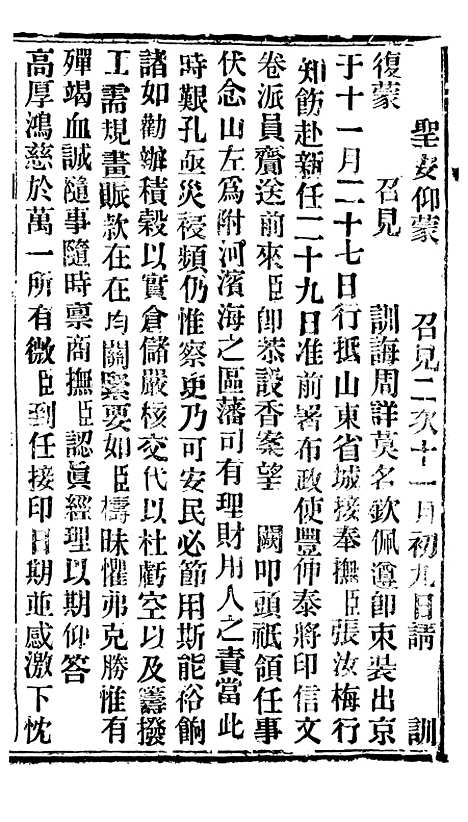 聖安仰蒙 召見二次十一月初九日請 訓
復蒙 召見 訓誨周詳莫名欽佩遵卽束裝出京
于十一月二十七日行抵山東省城接奉撫臣張汝梅行
知飭赴新任二十九日准前署布政使豐伸泰將印信文
卷派員齎送前來臣卽恭設香案望 闕叩頭祇領任事
伏念山左爲附河濱海之區藩司有理財用人之責當此
時艱孔亟災祲頻仍惟察吏乃可安民必節用斯能裕餉
諸如勸辦積穀以實倉儲嚴核交代以杜虧空以及籌撥
工需規畫賑款在在均關緊要如臣檮昧懼弗克勝惟有
殫竭血誠隨事隨時稟商撫臣認眞經理以期仰答
高厚鴻慈於萬一所有微臣到任接印日期並感激下忱